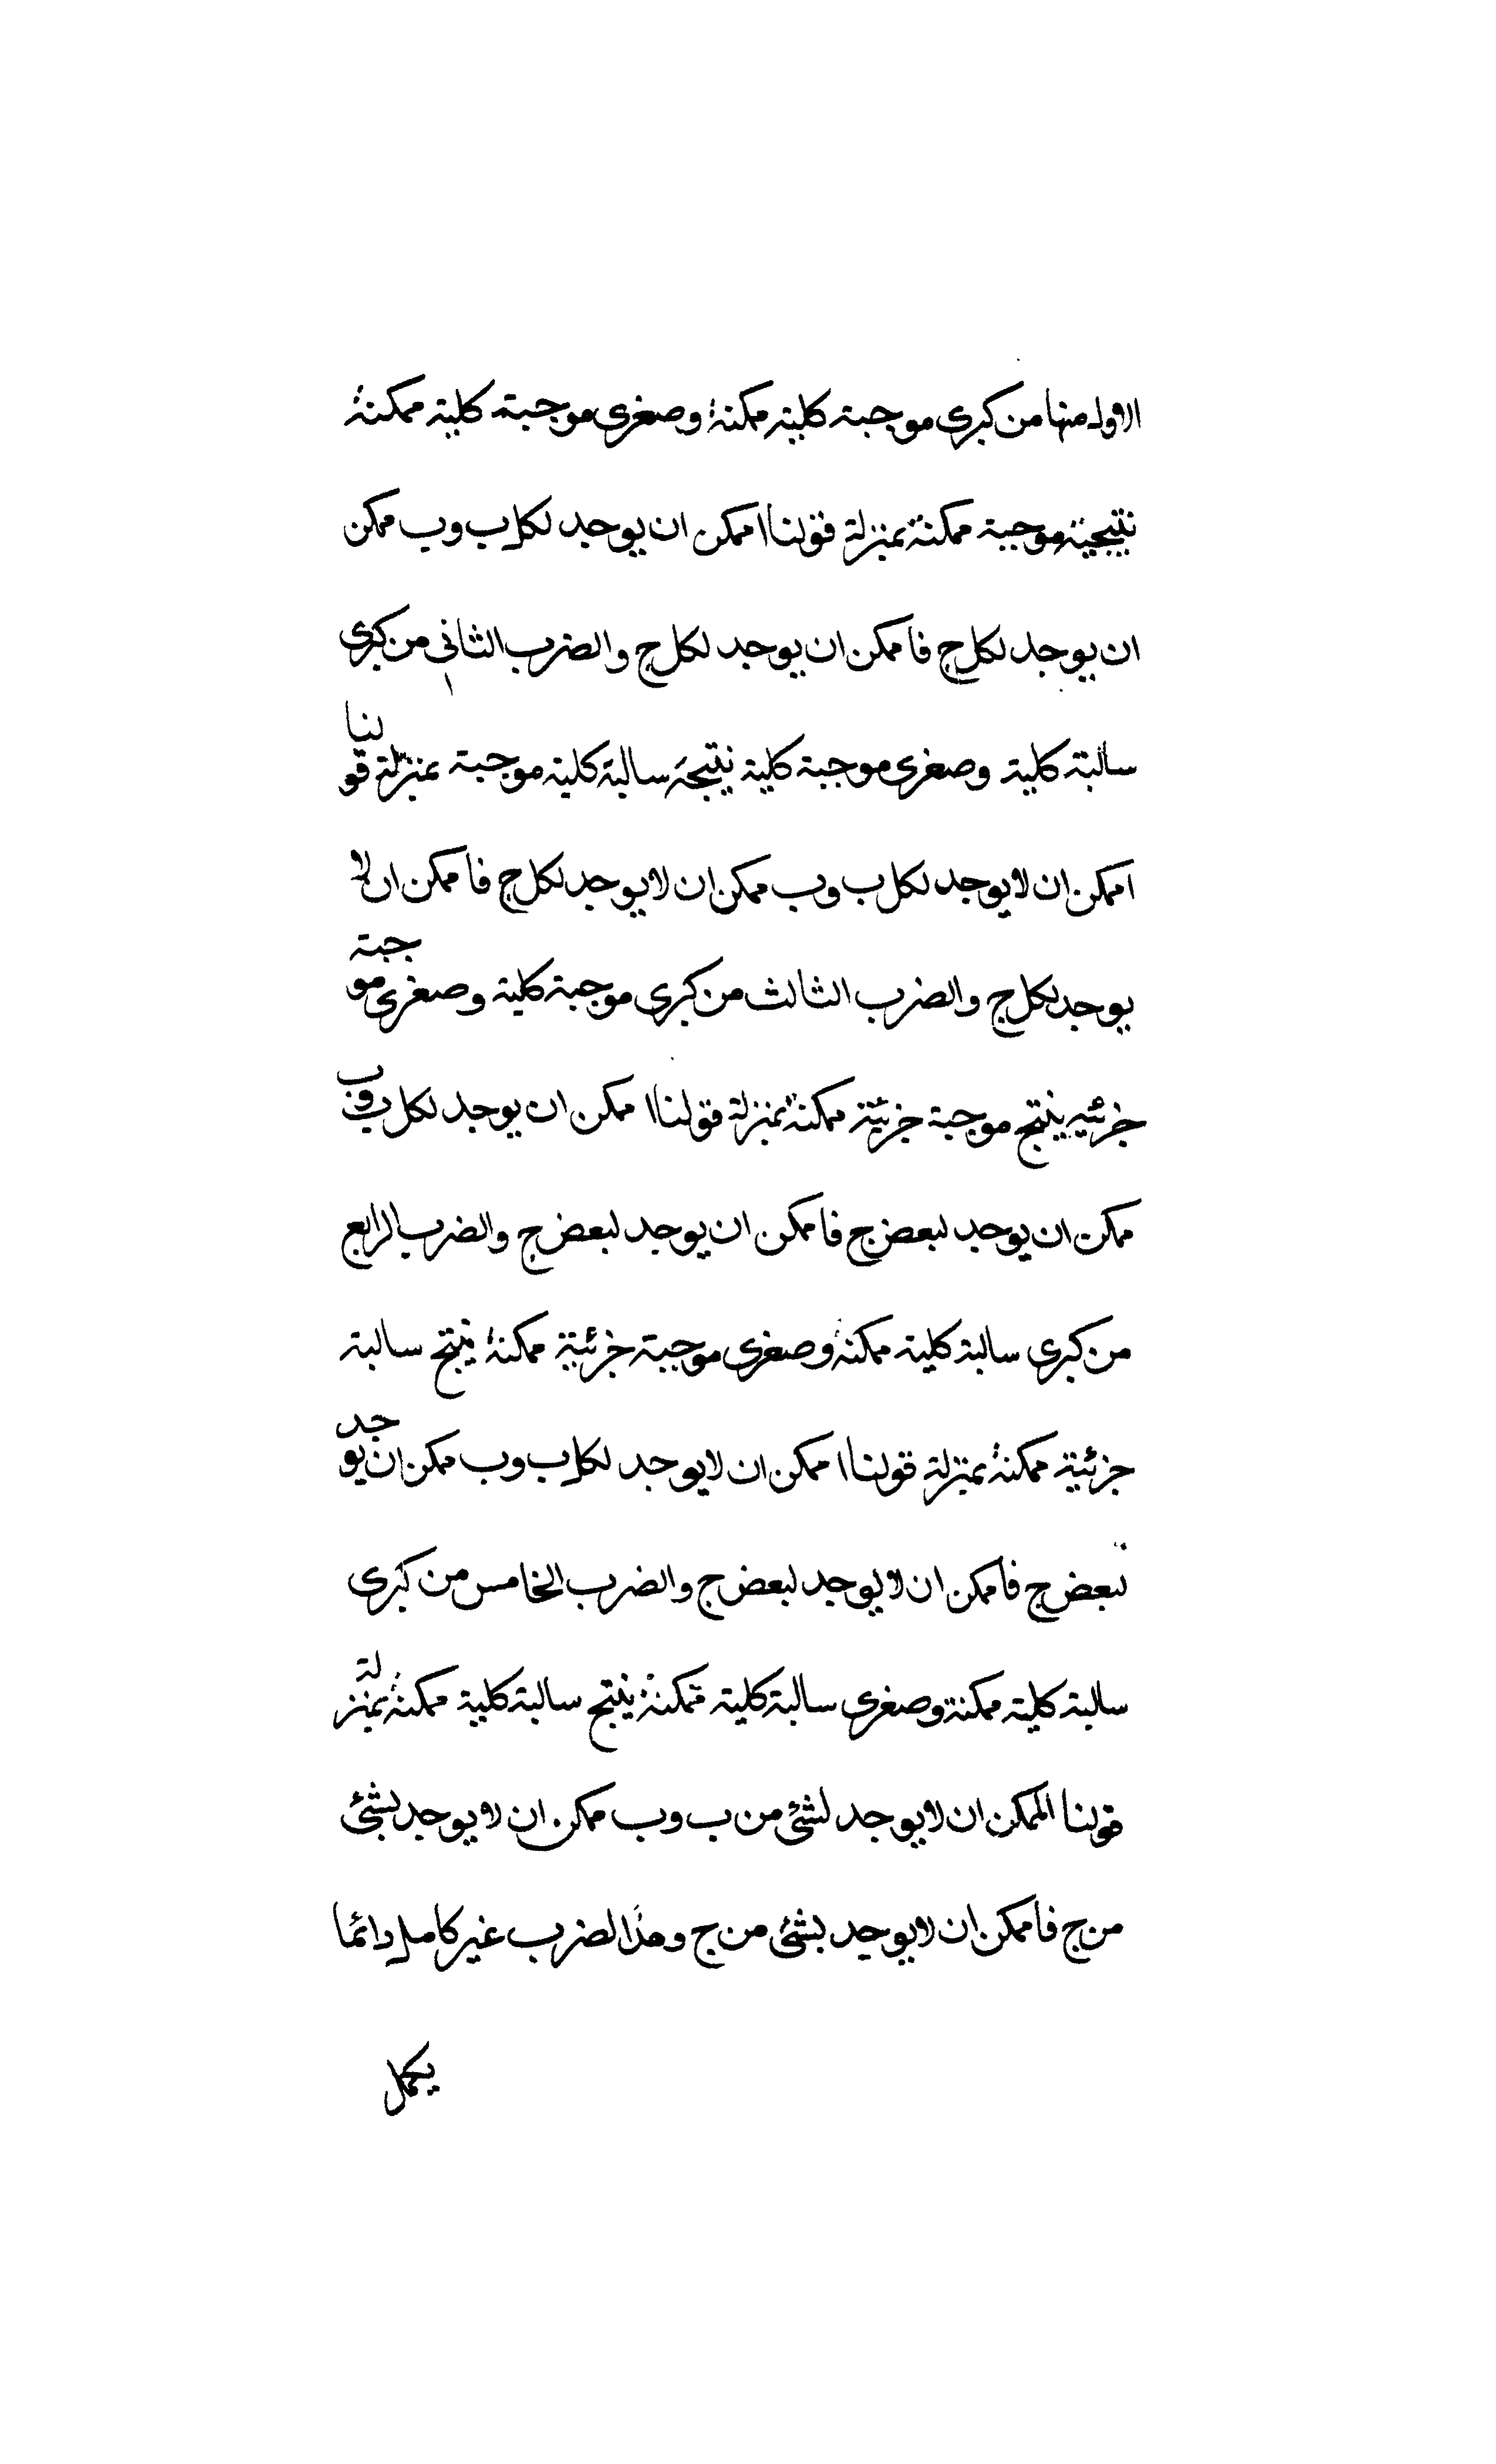 الاول منها من كبرى موجبة كلية ممكنة وصغرى موجبة كلية ممكنة
نتيجة موجبة ممكنة بمنزلة قولنا ا ممكن ان يوجد لكل ب وب ممكن
ان يوجد لكل ج فا ممكن ان يوجد لكل ج والضرب الثانى من كبرى
سالبة كلية وصغرى موجبة كلية نتيجة سالبة كلية موجبة بمنزلة قولنا
ا ممكن ان لا يوجد لكل ب وب ممكن ان لا يوجد لكل ج فا ممكن ان لا
يوجد لكل ج والضرب الثالث من كبرى موجبة كلية وصغرى موجبة
جزئيه ينتج موجبة جزئية ممكنة بمنزلة قولنا ا ممكن ان يوجد لكل ب وب
ممكن ان يوجد لبعض ج فا ممكن ان يوجد لبعض ج والضرب الرابع
من كبرى سالبة كلية ممكنة وصغرى موجبة جزئية ممكنة ينتج سالبة
جزئية ممكنة بمنزلة قولنا ا ممكن ان لا يوجد لكل ب وب ممكن ان يوجد
لبعض ج فا ممكن ان لا يوجد لبعض ج والضرب الخامس من كبرى
سالبة كلية ممكنة وصغرى سالبة كلية ممكنة ينتج سالبة كلية ممكنة بمنزلة
قولنا الممكن ان لا يوجد لشئ من ب وب ممكن ان لا يوجد بشئ
من ج فا ممكن ان لا يوجد بشئ من ج وهذا الضرب غير كامل دائما
يكمل